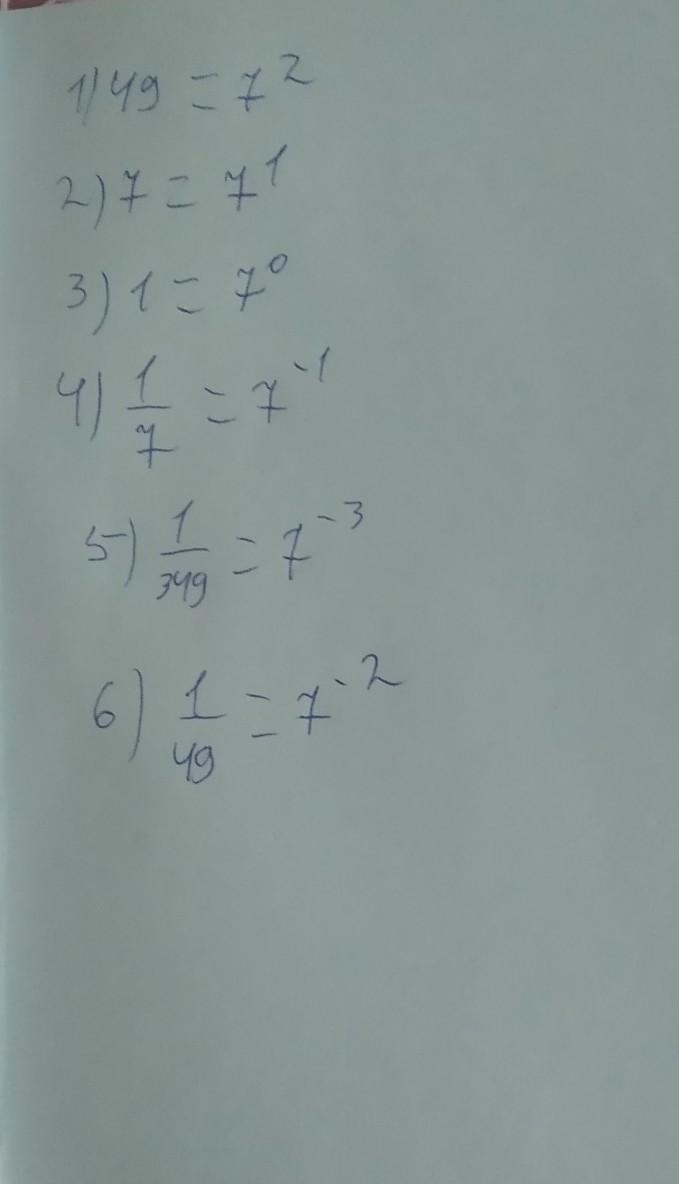 1) 49 = 7²
2) 7 = 7¹
3) 1 = 7⁰
4) 1/7 = 7⁻¹
5) 1/349 = 7⁻³
6) 1/49 = 7⁻²